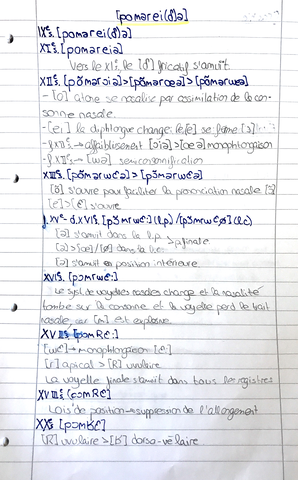 [pomərei(ð)ə]
IXᵉs. [pomərei(ð)ə]
XIᵉs. [poməreiə]
Vers le XIᵉs. le [ð] fricatif s'amuït.
XIIᵉs. [põmərɔiə]>[põməroœə]>[põmərwɛə]
- [o] atone se nasalise par assimilation de la con-
sonne nasale.
- [ei] la diphtongue change: [e/e] se ferme [ɔ]
- f.XIIᵉs → affaiblissement [ɔiə]>[œə] monophtongaison
- f.XIIᵉs → [wə] semiconsonnification
XIIIᵉs. [põmərwɛə]>[pɔ̃mərwɛə]
[õ] s'ouvre pour faciliter la prononciation nasale [ɔ̃]
[e]>[ɛ] s'ouvre
f.XVᵉ- d.XVIᵉs. [pɔ̃mrwɛ:](l.p)/[pɔ̃mrwɛø](l.c)
[ə] s'amuït dans la l.p
[ə]>[œ]/[ø] dans la l.c
>p.finale
[ə] s'amuït en position intérieure
XVIᵉs. [pɔmrwɛ:]
Le syst. de voyelles nasales change et la nasalité
tombe sur la consonne et la voyelle perd le trait
nasale, car [m] est explosive.
XVIIᵉs. [pɔmRɛ:]
[wɛ] → monophtongaison [ɛ:]
[r] apical > [R] uvulaire
La voyelle finale s'amuït dans tous les registres
XVIIIᵉs. [pɔmRɛ]
Lois de position → suppression de l'allongement
XXᵉs. [pɔmʁɛ]
[R] uvulaire > [ʁ] dorso-vélaire